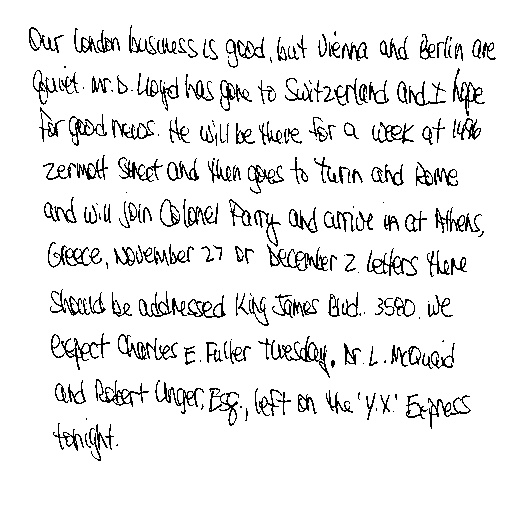 Our London business is good, but Vienna and Berlin are
quiet. Mr. D. Lloyd has gone to Switzerland and I hope
for good news. He will be there for a week at 1496
Zermott Street and then goes to Turin and Rome
and will join Colonel Parry and arrive in at Athens,
Greece, November 27 or December 2. Letters there
should be addressed King James Blvd. 3580. We
expect Charles E. Fuller Tuesday. Dr. L. McQuaid
and Robert Unger, Esq., left on the 'Y.X.' Express
tonight.